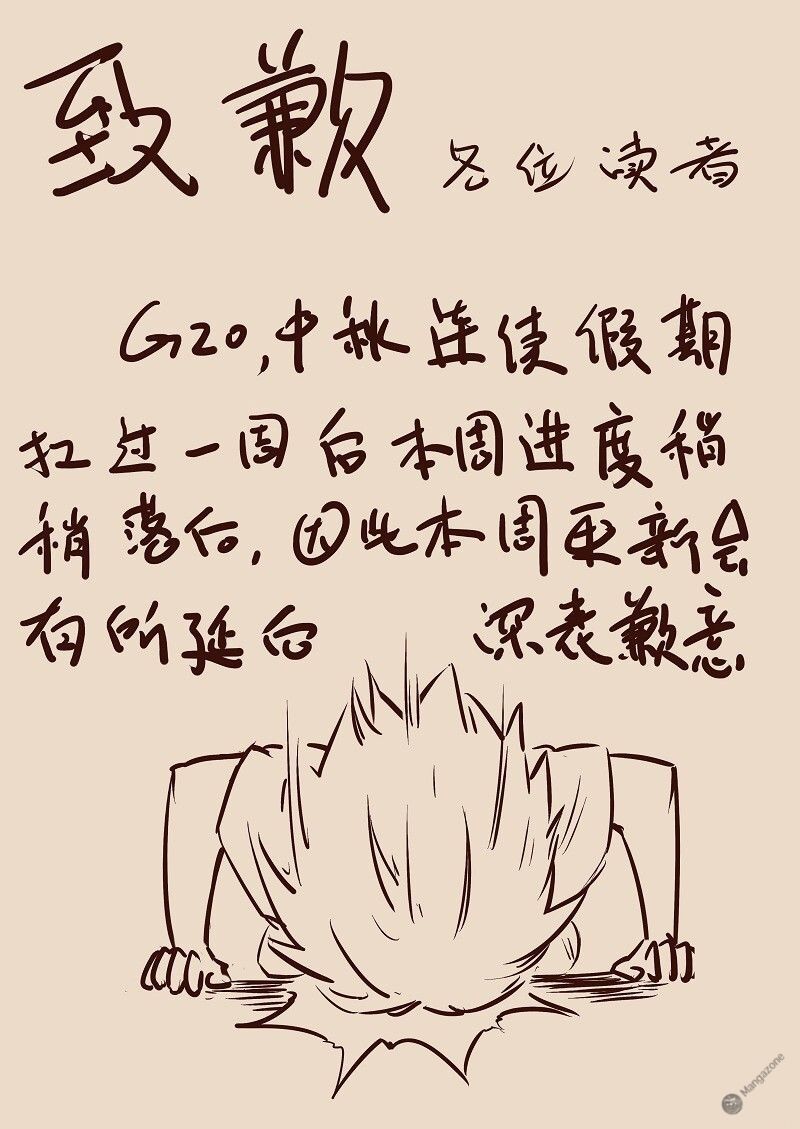 致歉 各位读者
G20,中秋连续假期
扛过一周后本周进度稍
稍落后,因此本周更新会
有所延后 深表歉意
Mangazone